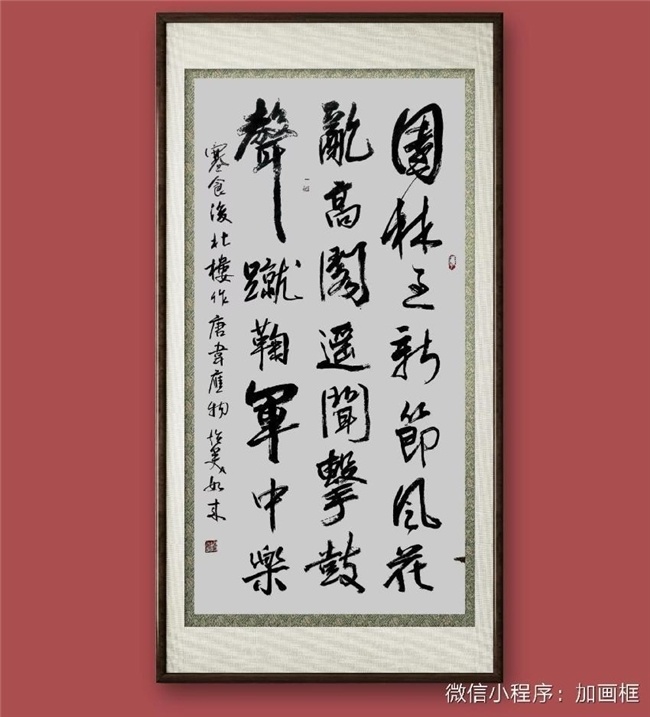 園林過新節風花
亂高閣遥聞擊鼓
聲蹴鞠軍中樂
寒食後北樓作唐韋應物
微信小程序：加画框